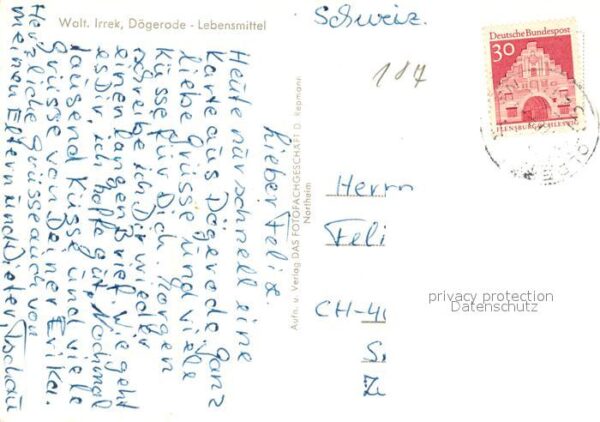 Walt. Irrek, Dögerode - Lebensmittel
Schweiz.
187
Deutsche Bundespost
30
FLENSBURG/SCHLESWIG
Lieber Felix.
Heute nur schnell eine
Karte aus Dögerode. Ganz
liebe Grüsse und viele
Küsse für Dich. Morgen
schreibe ich Dir wieder
einen langen Brief. Wie geht
es Dir, ich hoffe gut. Nochmal
tausend Küsse und viele
Grüsse von Deiner Erika.
Herzliche Grüsse auch von
meinen Eltern und Dieter. Tschau
Aufn. u. Verlag DAS FOTOFACHGESCHÄFT D. Repmann
Northeim
Herrn
Feli
CH-4
S
Z
privacy protection
Datenschutz